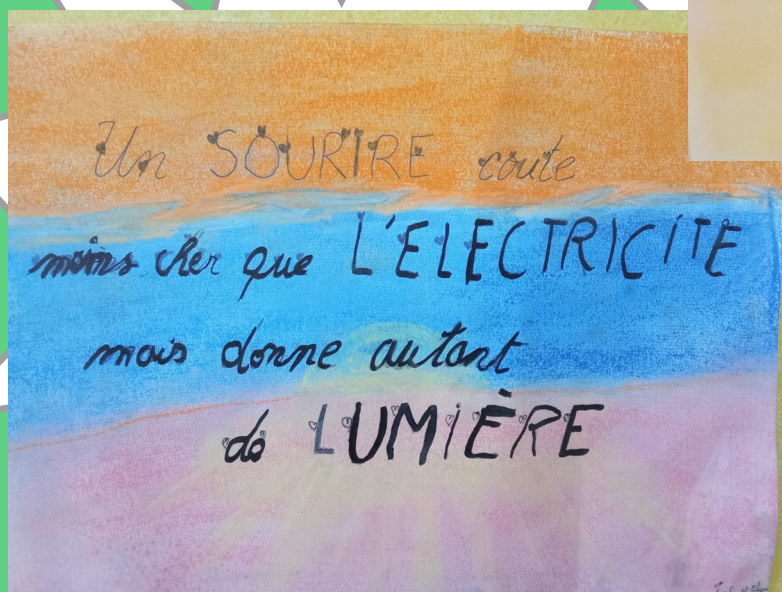 Un SOURIRE coute
moins cher que L'ELECTRICITE
mais donne autant
de LUMIÈRE